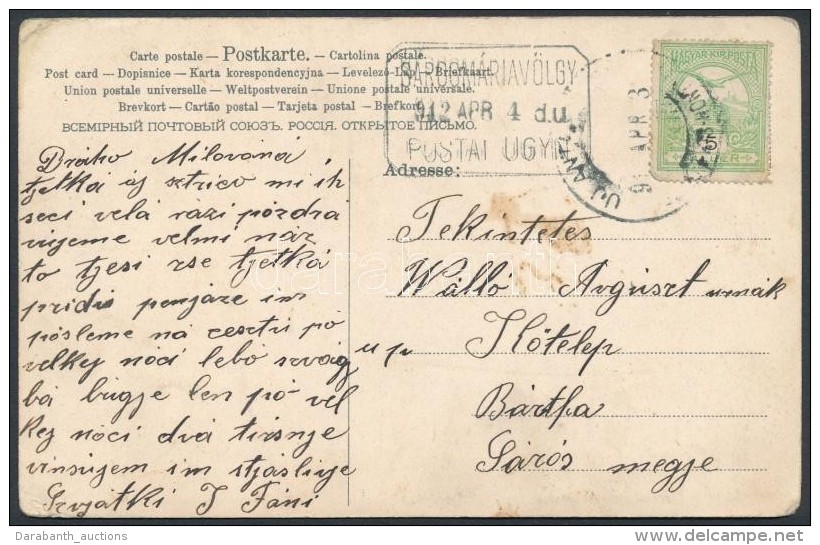 Carte postale — Postkarte. — Cartolina postale.
Post card — Dopisnice — Karta korespondencyjna — Levelező-Lap — Briefkaart.
Union postale universelle — Weltpostverein — Unione postale universale.
Brevkort — Cartão postal — Tarjeta postal — Brefkort.
ВСЕМІРНЫЙ ПОЧТОВЫЙ СОЮЗЪ. РОССІЯ. ОТКРЫТОЕ ПИСЬМО.
SÁROSMÁRIAVÖLGY
912 APR 4 d.u.
POSTAI ÜGYN
MAGYAR KIR. POSTA
5
APR 3
Adresse:
Draho Milovaná
tjetka áj sztrico mi ih
seci velá razi pozdra
vujeme velmi náz
to tjesi zse tjetká
pridú penjáze im
posleme ná cesztu po
velkej noci lebo szvág
bá bugje len po vel
kej noci dvá tirsnje
vinsujem im stjásliuje
Szvjátki J Fáni
Tekintetes
Válló Avguszt urnák
u p Kőtelep
Bártfa
Sáros megje
darabanth
Darabanth_auctions
www.delcampe.net